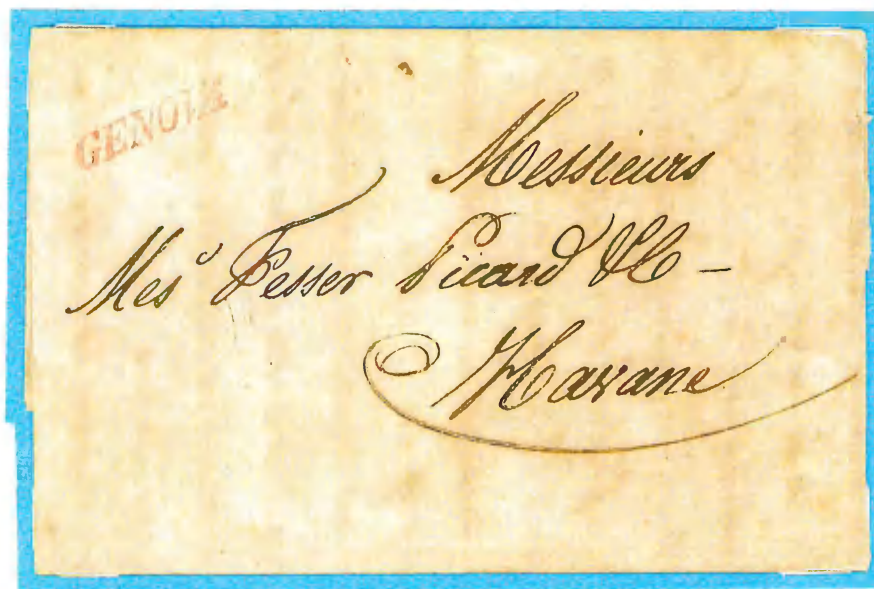 GENOVA
Messieurs
Mes^s Fesser Picard & C -
Havane